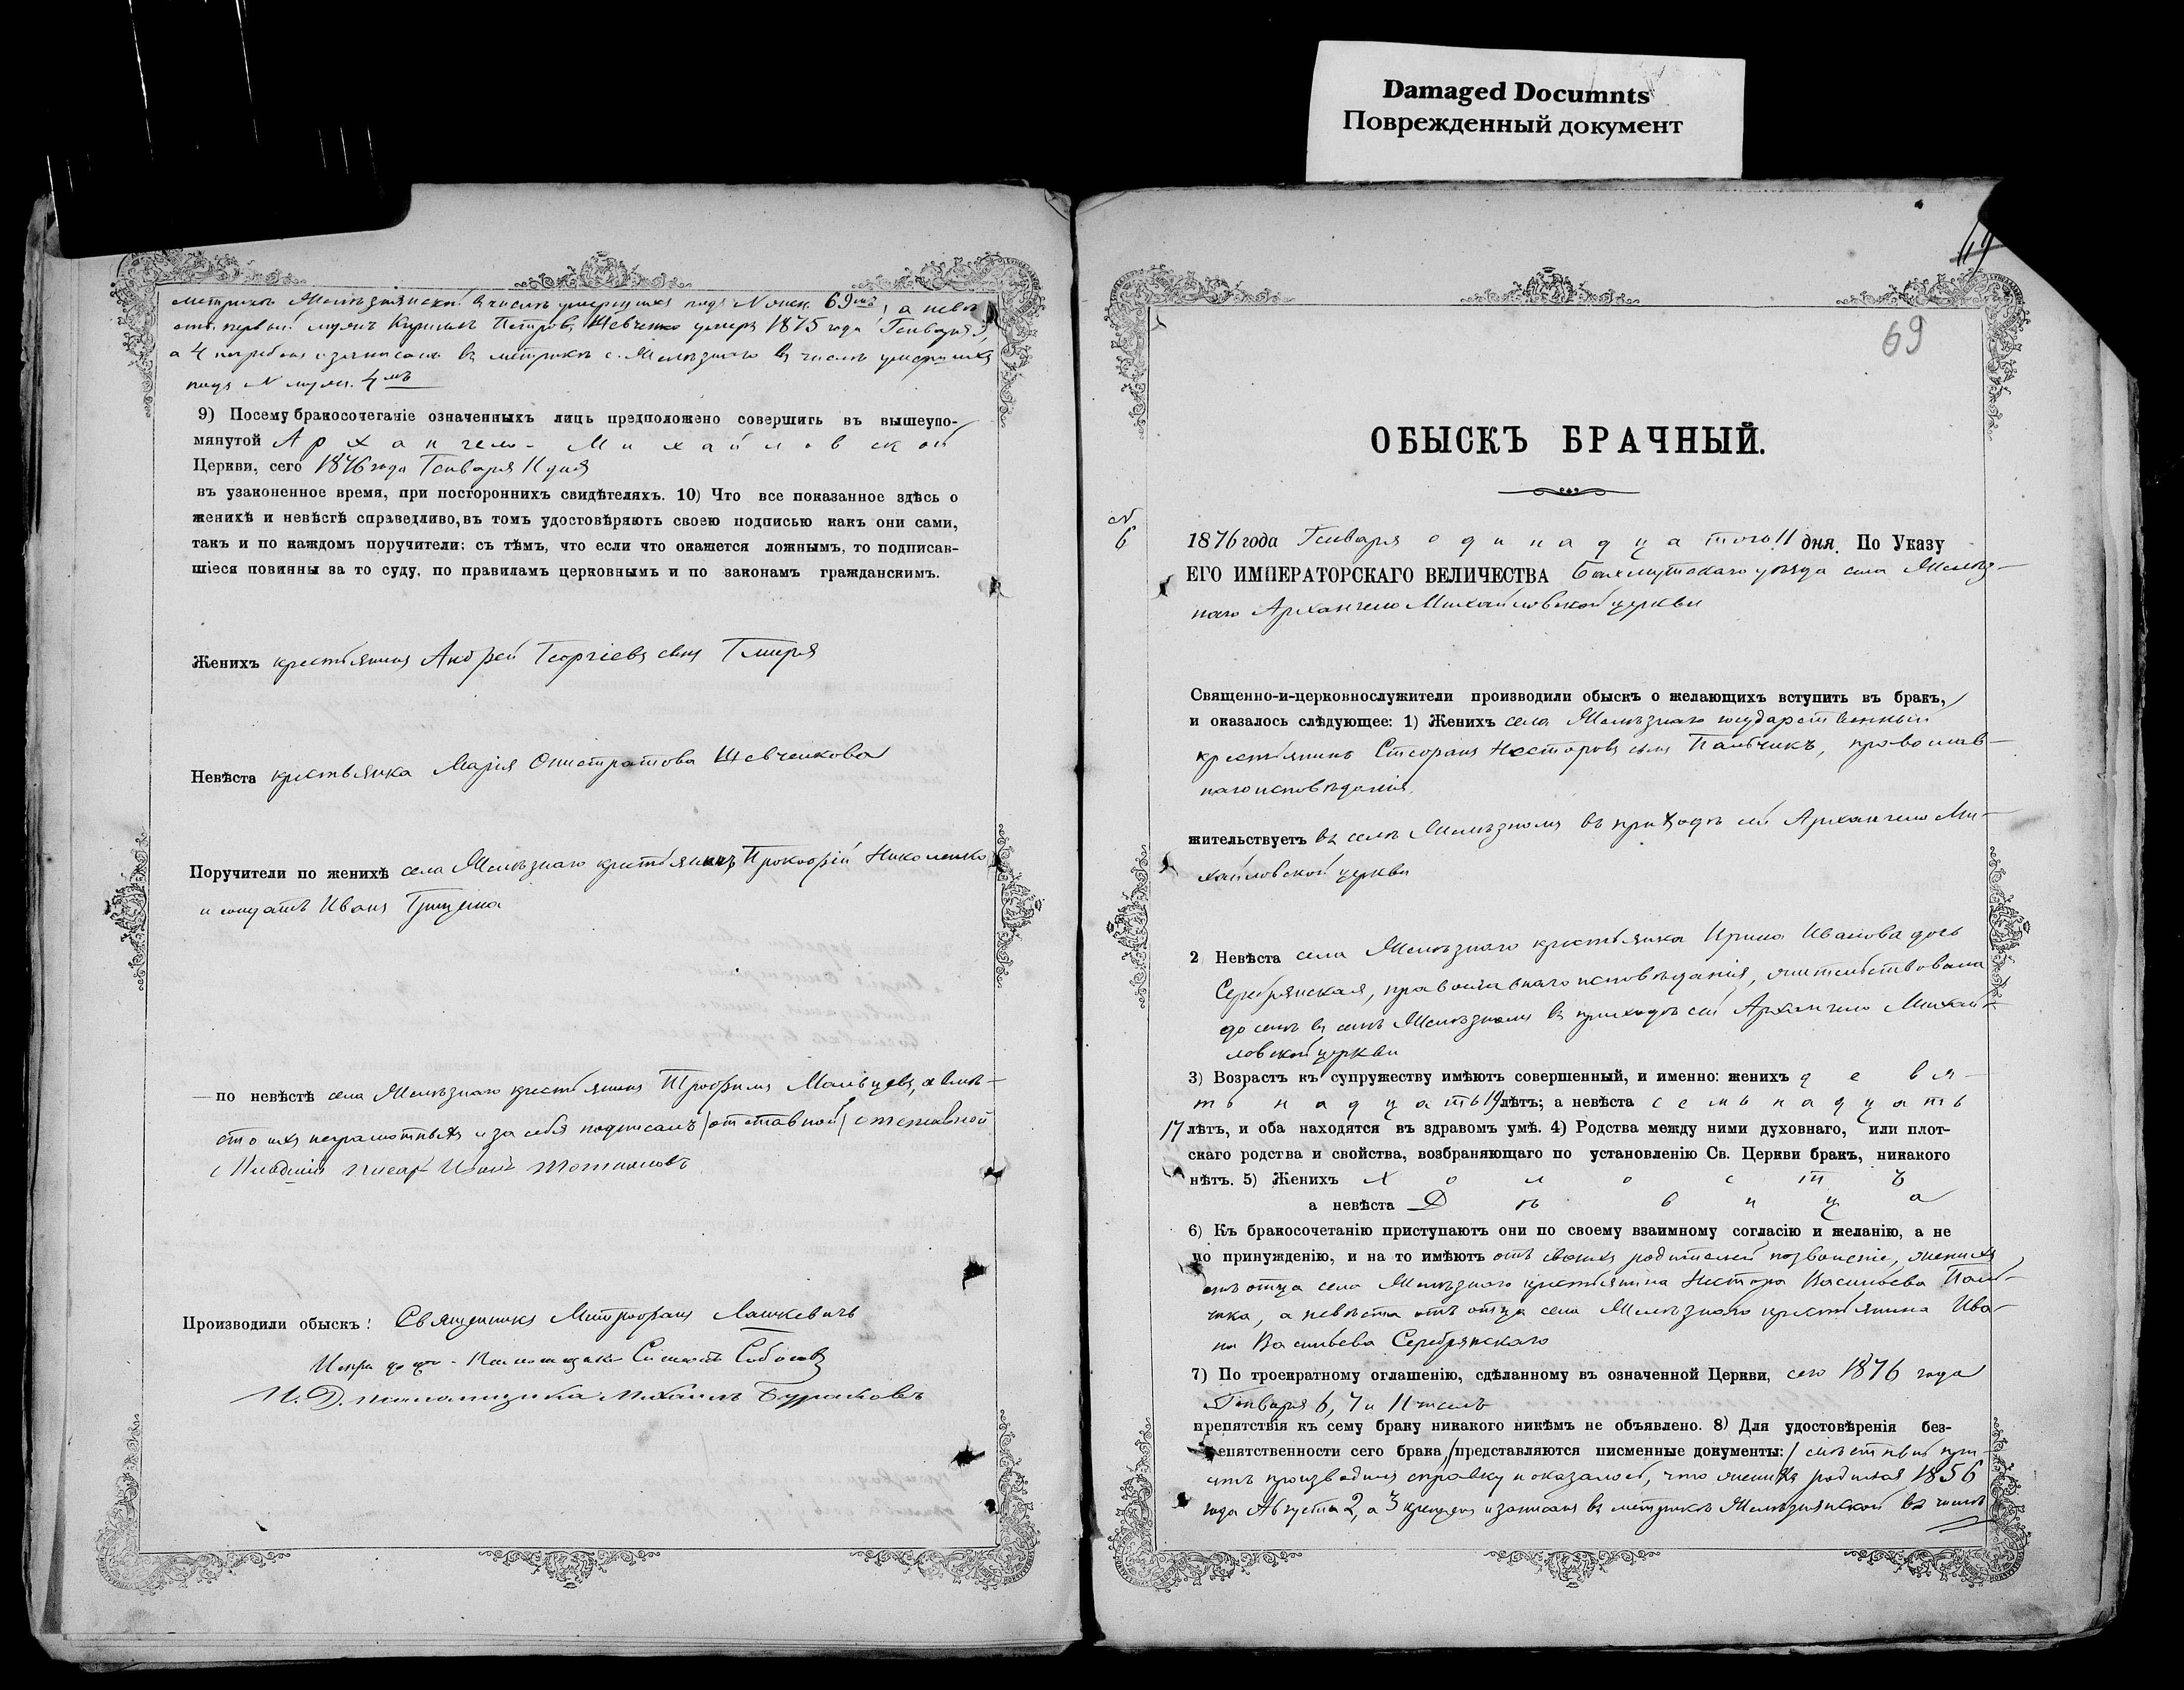 Damaged Documnts
Поврежденный документ
метрикѣ Желѣзнянской въ числѣ умершихъ подъ № женск. 69мъ, а невѣ
сты первый мужъ Кириллъ Петровъ Шевченко умеръ 1875 года Генваря 3,
а 4 погребенъ и записанъ въ метрикѣ с. Желѣзнаго въ числѣ умершихъ
подъ № муж. 4мъ
9) Посему бракосочетаніе означенныхъ лицъ предположено совершить въ вышеупо-
мянутой Архангело-Михайловской
Церкви, сего 1876 года Генваря 11 дня
въ узаконенное время, при постороннихъ свидѣтеляхъ. 10) Что все показанное здѣсь о
женихѣ и невѣстѣ справедливо, въ томъ удостовѣряютъ своею подписью какъ они сами,
такъ и по каждомъ поручители; съ тѣмъ, что если что окажется ложнымъ, то подписав-
шіеся повинны за то суду, по правиламъ церковнымъ и по законамъ гражданскимъ.
Женихъ крестьянинъ Андрей Георгіевъ сынъ Гмиря
Невѣста крестьянка Марія Онистратова Шевченкова
Поручители по женихѣ села Желѣзнаго крестьянинъ Прокофій Николенко
и солдатъ Иванъ Грищенко
по невѣстѣ села Желѣзнаго крестьянинъ Трофимъ Мальцевъ, а вмѣ-
сто ихъ неграмотныхъ и за себя подписалъ отставной
Младшій писарь Иванъ
Производили обыскъ: Священникъ Митрофанъ Лашкевичъ
Соболевъ
И. Д. пономщика Михаилъ Бураковъ
69
ОБЫСКЪ БРАЧНЫЙ.
№
6
1876 года Генваря одинадцатого 11 дня. По Указу
ЕГО ИМПЕРАТОРСКАГО ВЕЛИЧЕСТВА Бахмутскаго уѣзда села Желѣз-
наго Архангело Михайловской церкви
Священно-и-церковнослужители производили обыскъ о желающихъ вступить въ бракъ,
и оказалось слѣдующее: 1) Женихъ села Желѣзнаго государственный
крестьянинъ Стефанъ Несторовъ сынъ Пальчикъ, православ-
наго исповѣданія,
жительствуетъ въ селѣ Желѣзномъ въ приходѣ сей Архангело Ми-
хайловской церкви
2 Невѣста села Желѣзнаго крестьянка Ирина Иванова дочь
Серебрянская, православнаго исповѣданія, жительствовала
до селѣ въ селѣ Желѣзномъ въ приходѣ сей Архангело Михай-
ловской церкви
3) Возрастъ къ супружеству имѣютъ совершенный, и именно: женихъ девя-
тьнадцать 19 лѣтъ; а невѣста семьнадцать
17 лѣтъ, и оба находятся въ здравомъ умѣ. 4) Родства между ними духовнаго, или плот-
скаго родства и свойства, возбраняющаго по установленію Св. Церкви бракъ, никакого
нѣтъ. 5) Женихъ Холостъ
а невѣста Дѣвица
6) Къ бракосочетанію приступаютъ они по своему взаимному согласію и желанію, а не
по принужденію, и на то имѣютъ отъ своихъ родителей позволеніе, женихъ
отъ отца села Желѣзнаго крестьянина Нестора Васильева Паль-
чика, а невѣста отъ отца села Желѣзнаго крестьянина Ива-
на Васильева Серебрянскаго
7) По троекратному оглашенію, сдѣланному въ означенной Церкви, сего 1876 года
Генваря 6, 7 и 11 чиселъ
препятствія къ сему браку никакого никѣмъ не объявлено. 8) Для удостовѣренія без-
препятственности сего брака, представляются писменные документы:
производима справку и оказалось, что женихъ родился 1856
года Августа 2, а 3 крещенъ и записанъ въ метрикѣ Желѣзнянской въ числѣ